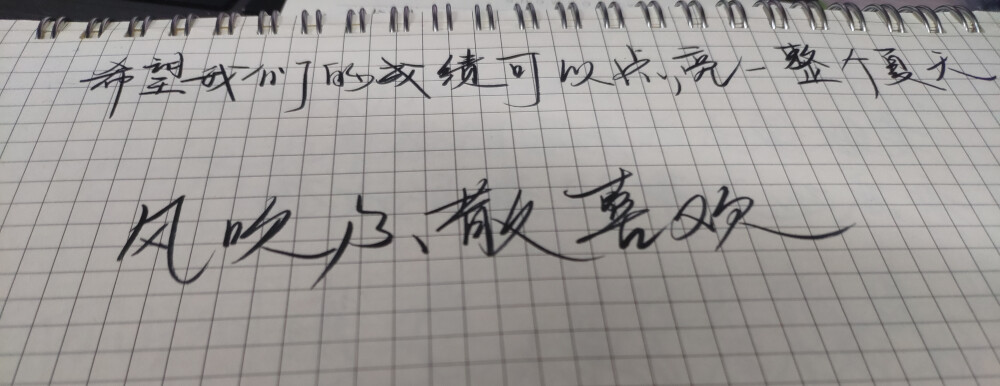 希望我们的成绩可以点亮一整个夏天
风吹不散喜欢